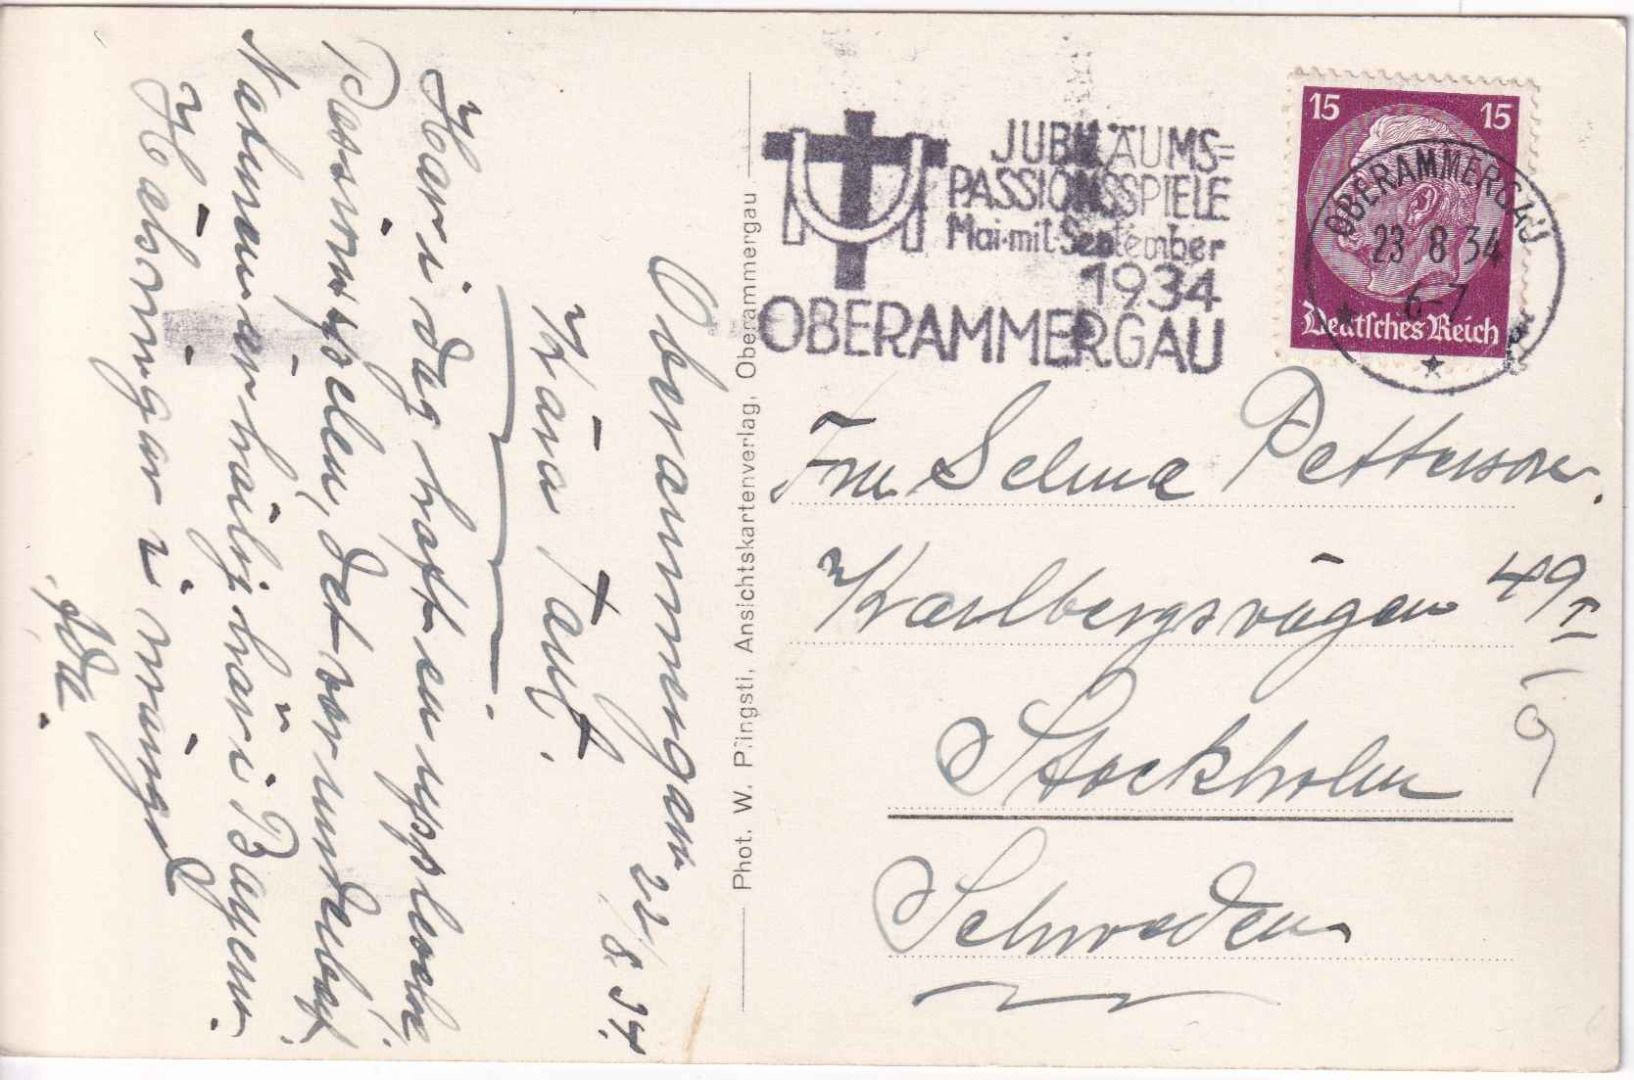 Oberammergau 22/8 34.
Kära Tant.
Har i dag haft en upplevelse,
Passionsspelen, det var underbart.
Naturen är härlig här i Bayern.
Hälsningar i mängd
Ida.
Phot. W. Pfingstl, Ansichtskartenverlag, Oberammergau
JUBILÄUMS=
PASSIONSSPIELE
Mai mit September
1934
OBERAMMERGAU
15 15
Deutsches Reich
OBERAMMERGAU
23 8 34
6-7
Fru Selma Petterson.
Karlbergsvägen 49 I
Stockholm
Schweden